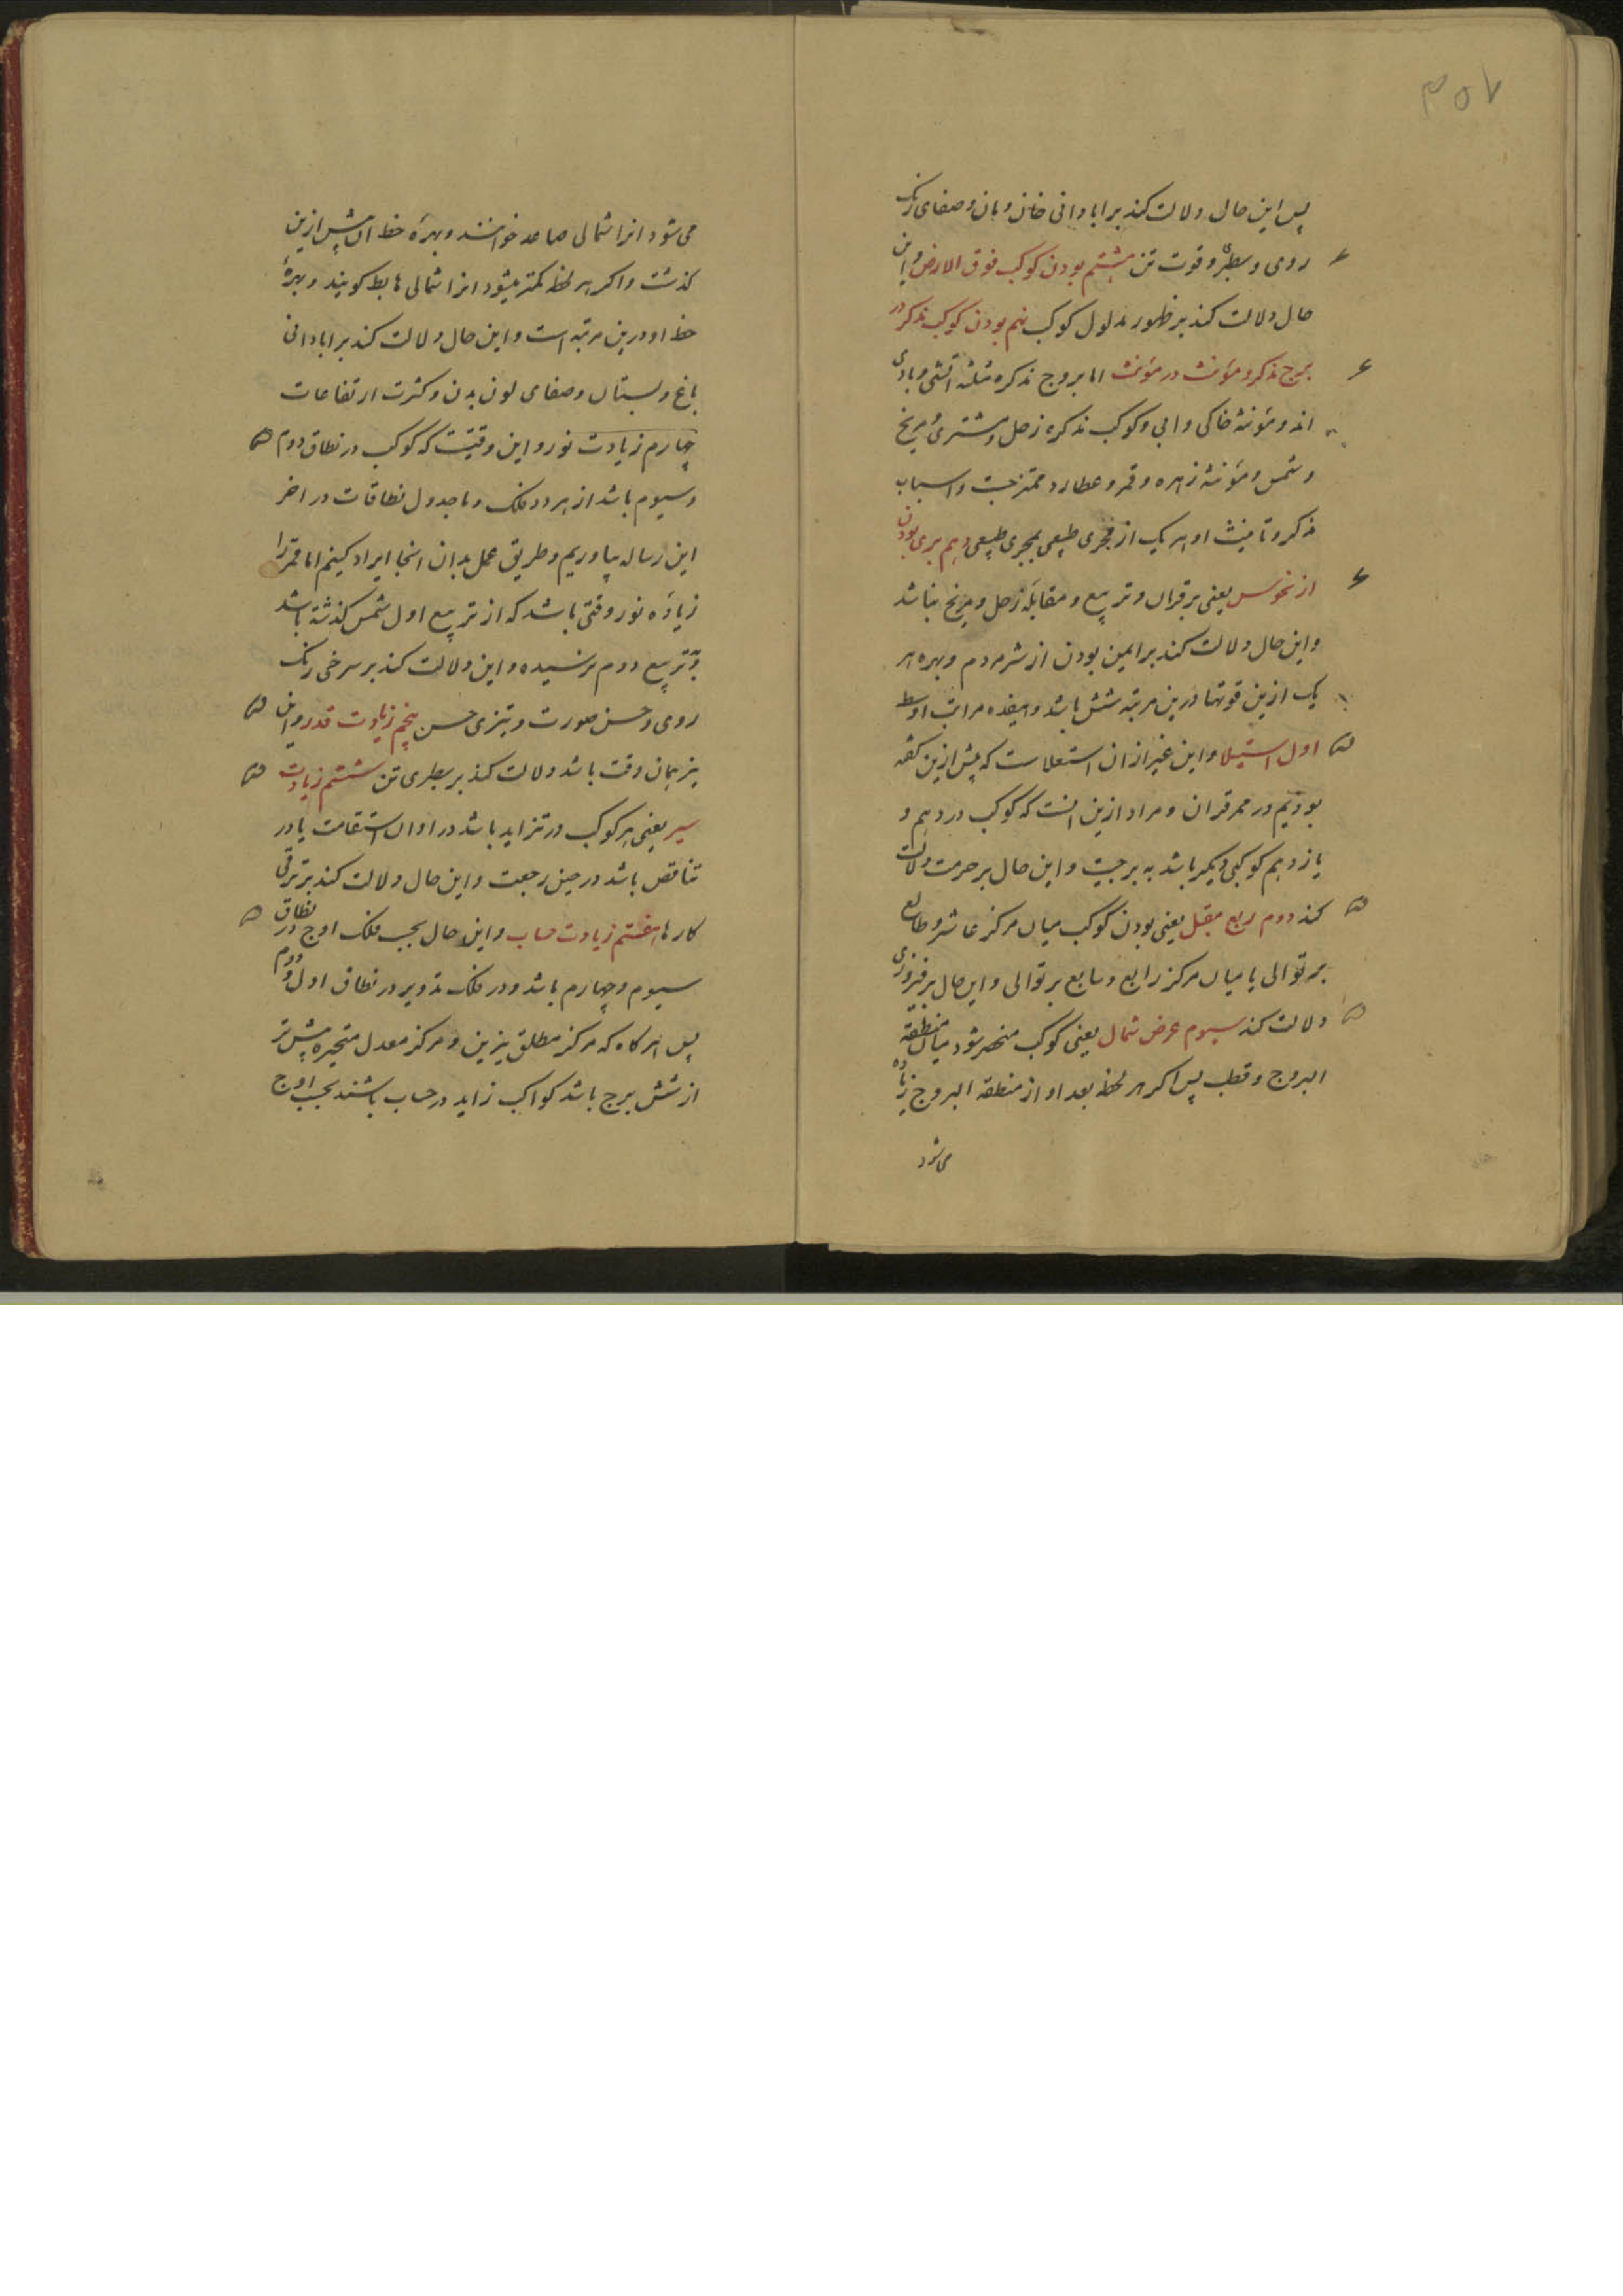 ۳۵۷
پس این حال دلالت کند بر ابادانی خان و مان و صفای رنک
روی و سطبری و قوت تن هشتم بودن کوکب فوق الارض و این
حال دلالت کند بر ظهور مدلول کوکب نهم بودن کوکب مذکر در
برج مذکر و مؤنث در مؤنث اما بروج مذکره مثلثه اتشی و بادی
اند و مؤنثه خاکی و ابی و کوکب مذکره زحل و مشتری و مریخ
و شمس و مؤنثه زهره و قمر و عطارد ممتزجست و اسباب
تذکیر و تانیث او هر یک از مجری طبیعی بمجری طبیعی دهم بری بودن
از نحوس یعنی بر قران و تربیع و مقابله زحل و مریخ نباشد
و این حال دلالت کند بر ایمن بودن از شر مردم و بهره هر
یک ازین قوتها درین مرتبه شش باشد و هیفده مراتب اوسط
اول استیلا و این غیر از ان استعلاست که پیش ازین کفته
بودیم در ممر قران و مراد ازین انست که کوکب در دهم و
یازدهم کوکبی دیکر باشد به برجیت و این حال بر حرمت دلالت
کند دوم ربع مقبل یعنی بودن کوکب میان مرکز عاشر و طالع
بر توالی یا میان مرکز رابع و سابع بر توالی و این حال بر فیروزی
دلالت کند سیوم عرض شمال یعنی کوکب منحصر شود میان منطقة
البروج و قطب پس اکر هر لحظه بعد او از منطقة البروج زیاده
می شود
می شود انرا شمالی صاعد خوانند و بهرهٔ حظ ان پیش ازین
کذشت و اکر هر لحظه کمتر میشود انرا شمالی هابط کویند و بهرهٔ
حظ او درین مرتبه است و این حال دلالت کند بر ابادانی
باغ و بستان و صفای لون بدن و کثرت ارتفاعات
چهارم زیادت نور و این وقتیست که کوکب در نطاق دوم
و سیوم باشد از هر دو فلک و ما جدول نطاقات در اخر
این رساله بیاوریم و طریق عمل بدان انجا ایراد کنیم اما قمر را
زیاده نور وقتی باشد که از تربیع اول شمس کذشته باشد
و بتربیع دوم نرسیده و این دلالت کند بر سرخی رنک
روی و حسن صورت و تیزی حس پنجم زیادت قدر و این
نیز همان وقت باشد دلالت کند بر سطبری تن ششم زیادت
سیر یعنی هر کوکب در تزاید باشد در اوان استقامت یا در
تناقص باشد در حین رجعت و این حال دلالت کند بر ترقی
کارها هفتم زیادت حساب و این حال بحسب فلک اوج در نطاق
سیوم و چهارم باشد و در فلک تدویر در نطاق اول و دوم
پس هر کاه که مرکز مطلق نیرین و مرکز معدل متحیره بیش تر
از شش برج باشد کواکب زاید در حساب باشند بحسب اوج